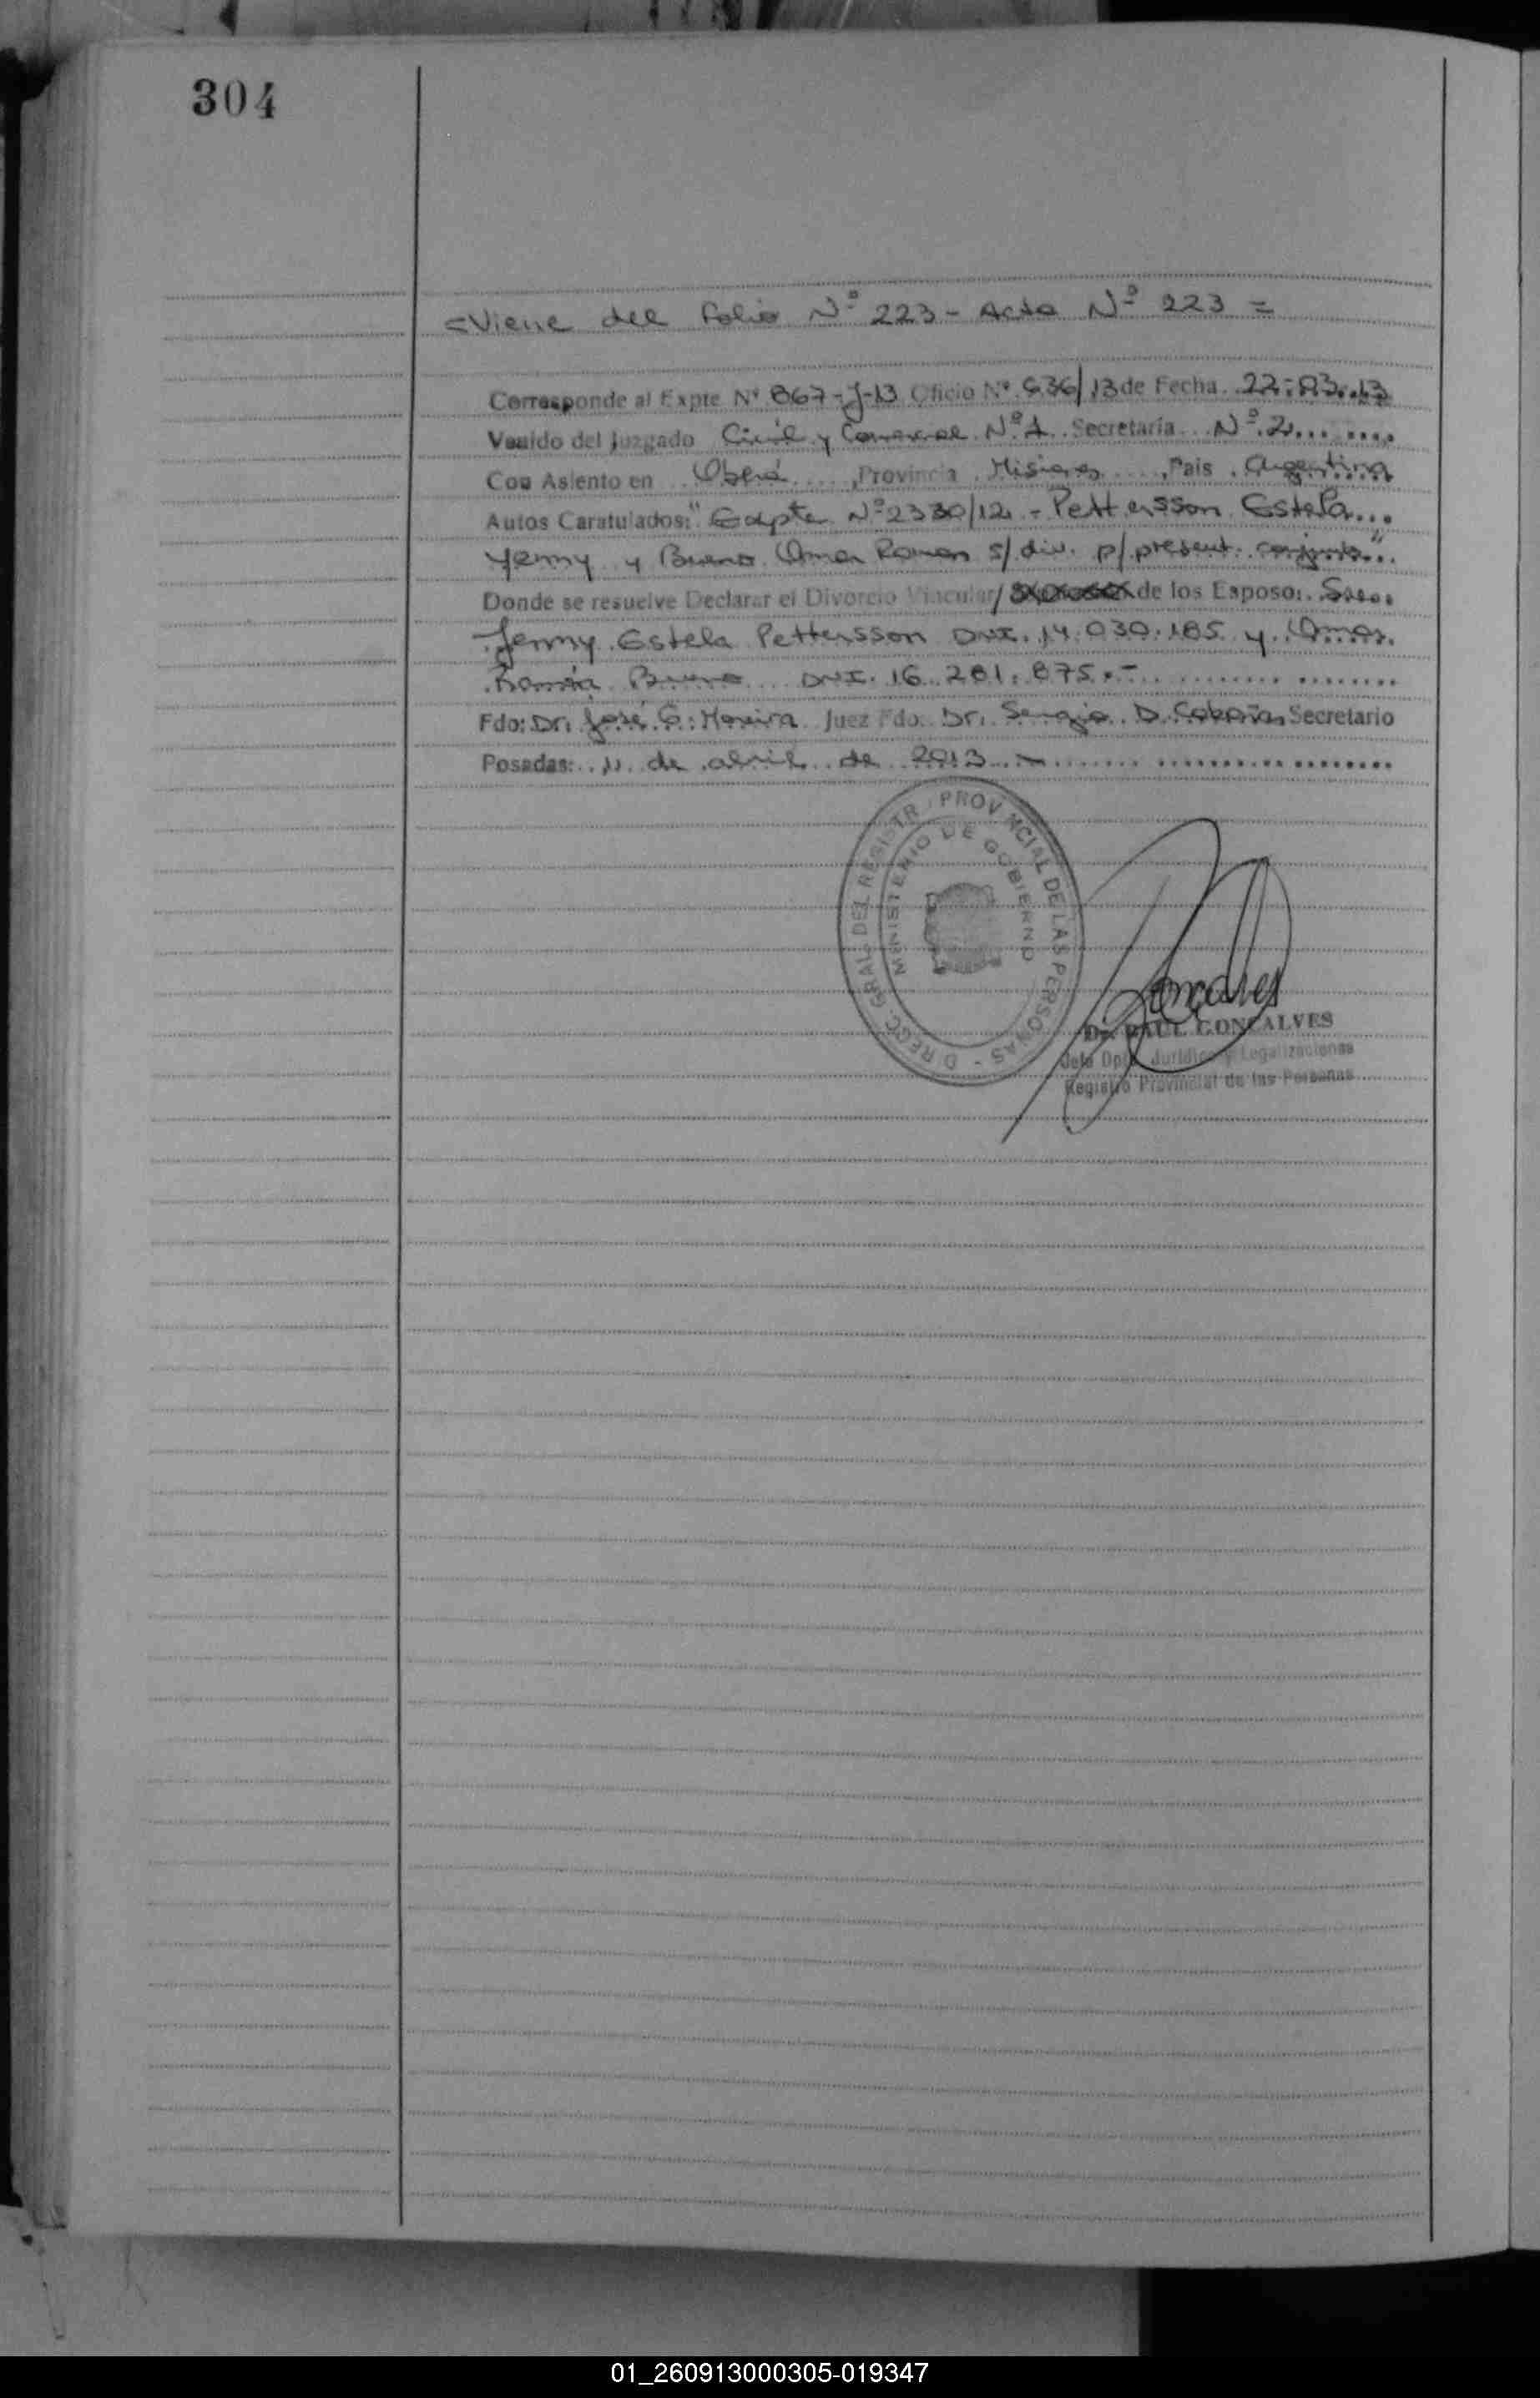 304
=Viene del Folio Nº 223 - Acta Nº 223 =
Corresponde al Expte Nº 867-J-13 Oficio Nº 636/13 de Fecha 22-03-13
Venido del Juzgado Civil y Comercial Nº 1 Secretaría Nº 2
Con Asiento en Oberá, Provincia Misiones, País Argentina
Autos Caratulados: "Expte Nº 2330/12 - Pettersson Estela
Yenny y Bueno Omar Ramon s/ div. p/ present. conjunta"
Donde se resuelve Declarar el Divorcio Vincular/ de los Esposo:
Jenny Estela Pettersson DNI. 14.030.185 y Omar
Ramón Bueno DNI. 16.281.875.-
Fdo: Dr. José G. Moreira Juez Fdo: Dr. Sergio D. Secretario
Posadas: 11 de abril de 2013
DIRECC. GRAL. DEL REGISTR. PROVINCIAL DE LAS PERSONAS -
MINISTERIO DE GOBIERNO
Goncalves
Dr. RAUL GONCALVES
Jefe Dpto. Jurídico y Legalizaciones
Registro Provincial de las Personas
01_260913000305-019347